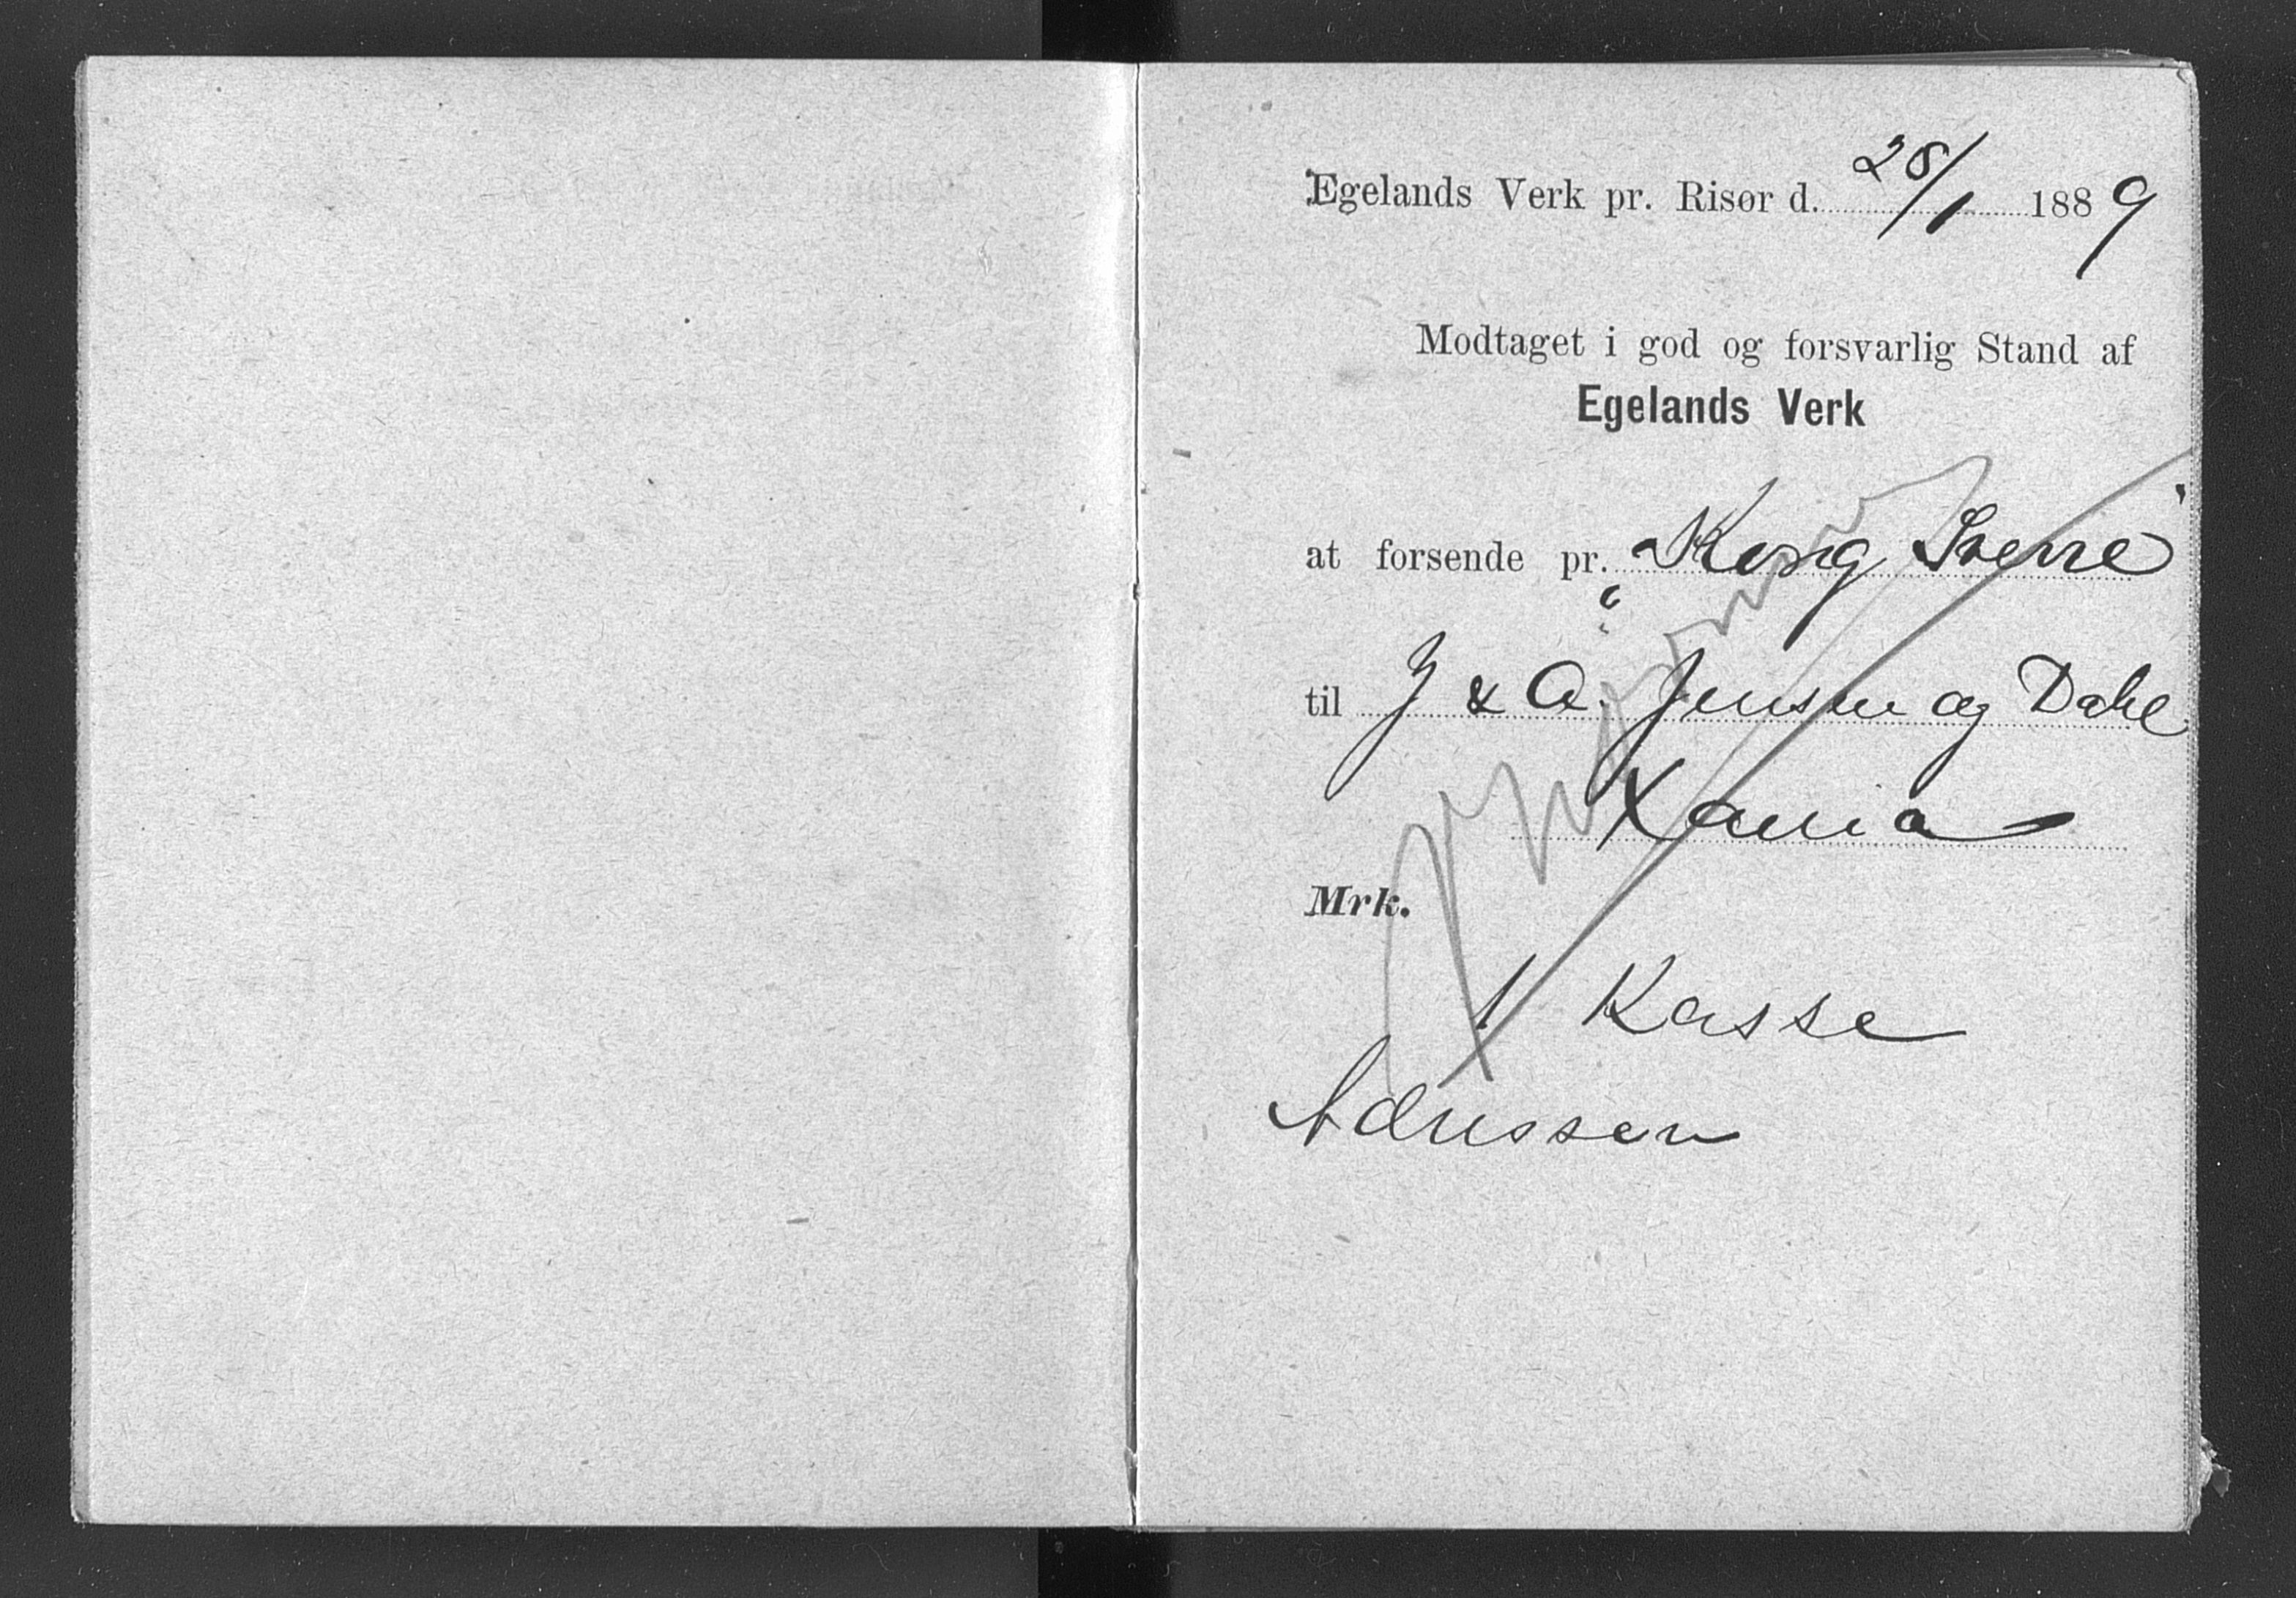 Egelands Verk pr. Risør d. 28/1 1889
Modtaget i god og forsvarlig Stand af
Egelands Verk
at forsende pr. "Kong Sverre"
til J & A. Jensen og Dahl
Xania
Mrk.
1 Kasse
Adressen